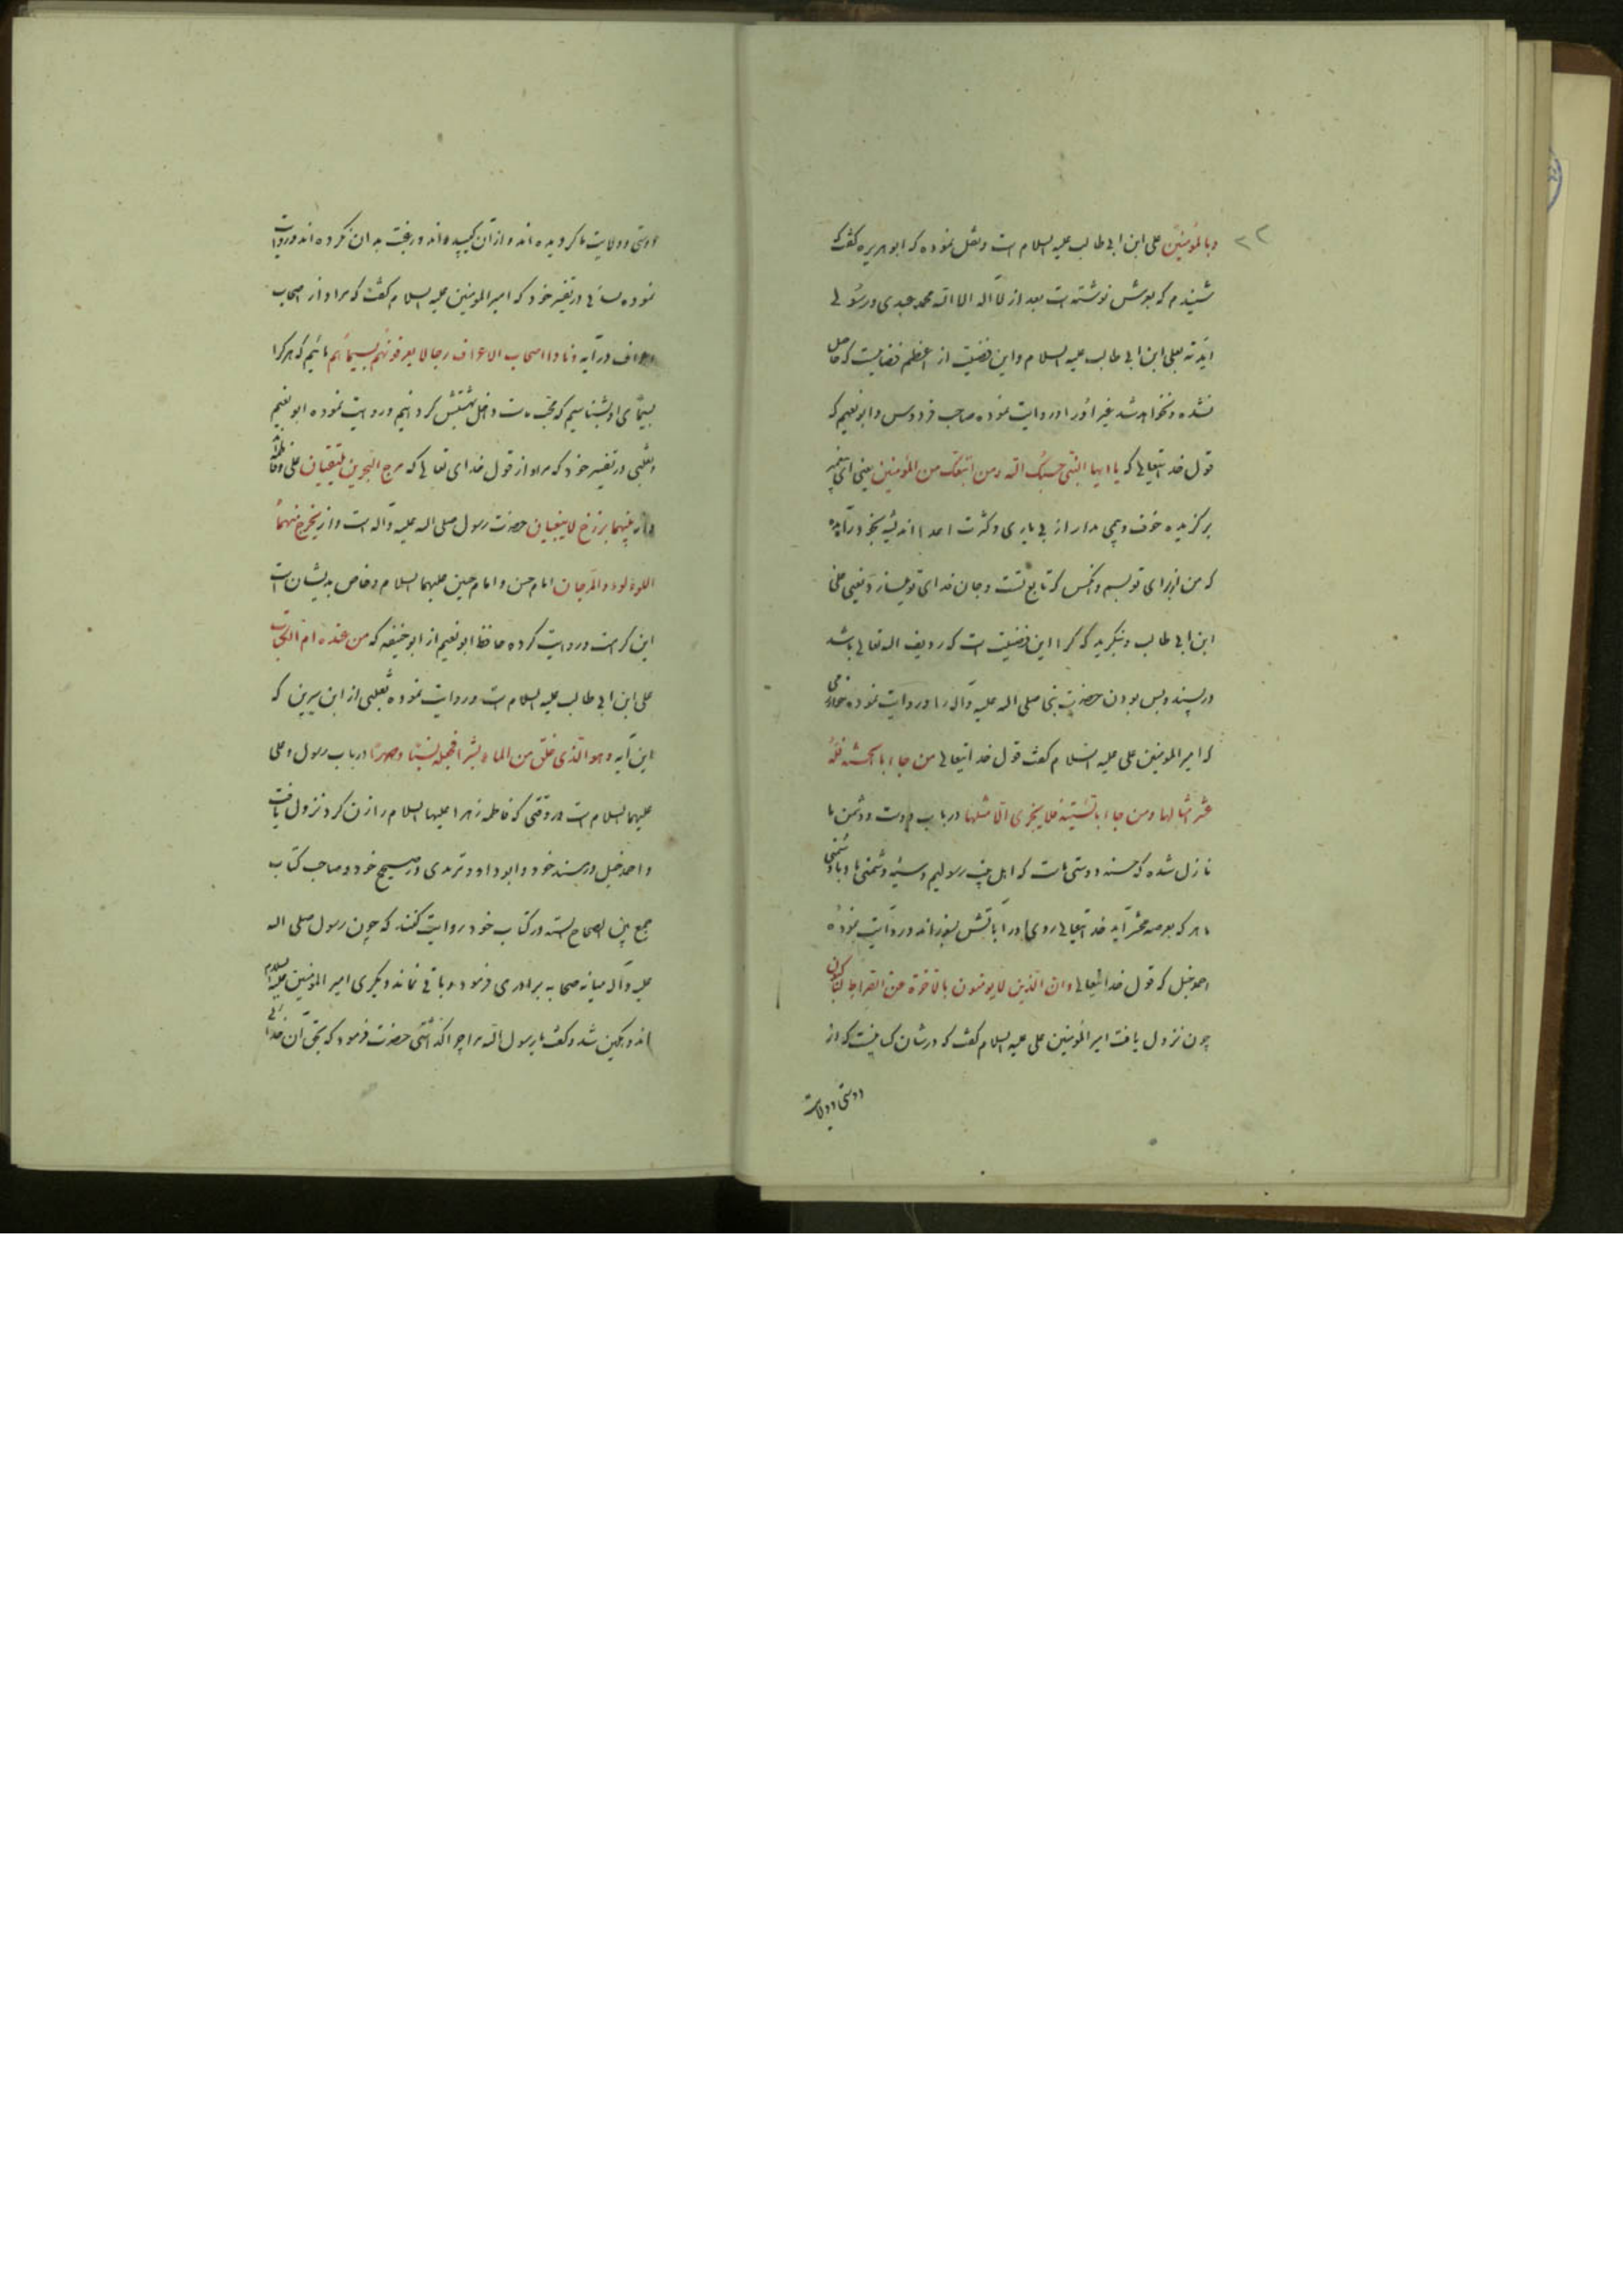 ۲۲
وبالمؤمنین علی ابن ابی طالب علیه السلام است ونقل نموده که ابو هریره گفت که
شنیدم که بعرش نوشته است بعد از لا اله الا الله محمد عبدی ورسولی
ایدته بعلی ابن ابی طالب علیه السلام واین فضیلت از اعظم فضایلیست که حاصل
نشده ونخواهد شد غیر اورا وروایت نموده صاحب فردوس وابو نعیم که
قول خدایتعالی که یا ایها النبی حسبک الله ومن اتبعک من المؤمنین یعنی ای پیغمبر
برگزیده خوف وبیمی مدار از بی یاری وکثرت اعدا اندیشه بخود راه مده
که من از برای تو بسم وآنکس که تابع تست وجان فدای تو میسازد یعنی علی
ابن ابی طالب وبنگرید که کرا این فضیلت است که ردیف الله تعالی باشد
در پسند وبس بودن حضرت نبی صلی الله علیه وآله را وروایت نموده خوارزمی
که امیر المومنین علی علیه السلام گفت قول خدایتعالی من جاء بالحسنة فله
عشر امثالها ومن جاء بالسیئة فلا یجزی الا مثلها در باب دوست ودشمن ما
نازل شده که حسنه دوستی ماست که اهل بیت رسولیم وسیئه دشمنی ما وبا دشمنی
ما هر که بعرصه محشر آید خدایتعالی روی اورا بآتش بسوزاند وروایت نموده
احمد حنبل که قول خدایتعالی وان الذین لا یومنون بالاخرة عن الصراط لناکبون
چون نزول یافت امیر المومنین علی علیه السلام گفت که در شان کسانیست که از
دوستی وولایت
دوستی وولایت ما گردیده اند واز آن کمیده اند ورغبت بدان نکرده اند وروایت
نموده در تفسیر خود که امیر المومنین علیه السلام گفت که مراد از اصحاب
اعراف در آیه ونادا اصحاب الاعراف رجالا یعرفونهم بسیماهم مائیم که هرکرا
بسیمای او بشناسیم که محب ماست داخل بهشتش گردانیم وروایت نموده ابو نعیم
وثعلبی در تفسیر خود که مراد از قول خدای تعالی که مرج البحرین یلتقیان علی وفاطمه
واز بینهما برزخ لا یبغیان حضرت رسول صلی الله علیه وآله است واز یخرج منهما
اللؤلوء والمرجان امام حسن وامام حسین علیهما السلام وخاص بدیشان است
این کرامت وروایت کرده حافظ ابو نعیم از ابو حنیفه که من عنده ام الکتاب
علی ابن ابی طالب علیه السلام است وروایت نموده ثعلبی از ابن سیرین که
این آیه وهو الذی خلق من الماء بشرا فجعله نسبا وصهرا در باب رسول وعلی
علیهما السلام است در وقتی که فاطمه زهرا علیها السلام را زن کرد نزول یافت
واحمد حنبل در مسند خود وابو داود وترمدی در صحیح خود وصاحب کتاب
جمع بین الصحاح السته در کتاب خود روایت کنند که چون رسول صلی الله
علیه وآله میانه صحابه برادری فرمود وباقی نماند دیگری امیر المومنین علیه السلام
اندوهگین شد وگفت یا رسول الله مرا چرا گذاشتی حضرت فرمود که بحق آن خدائی